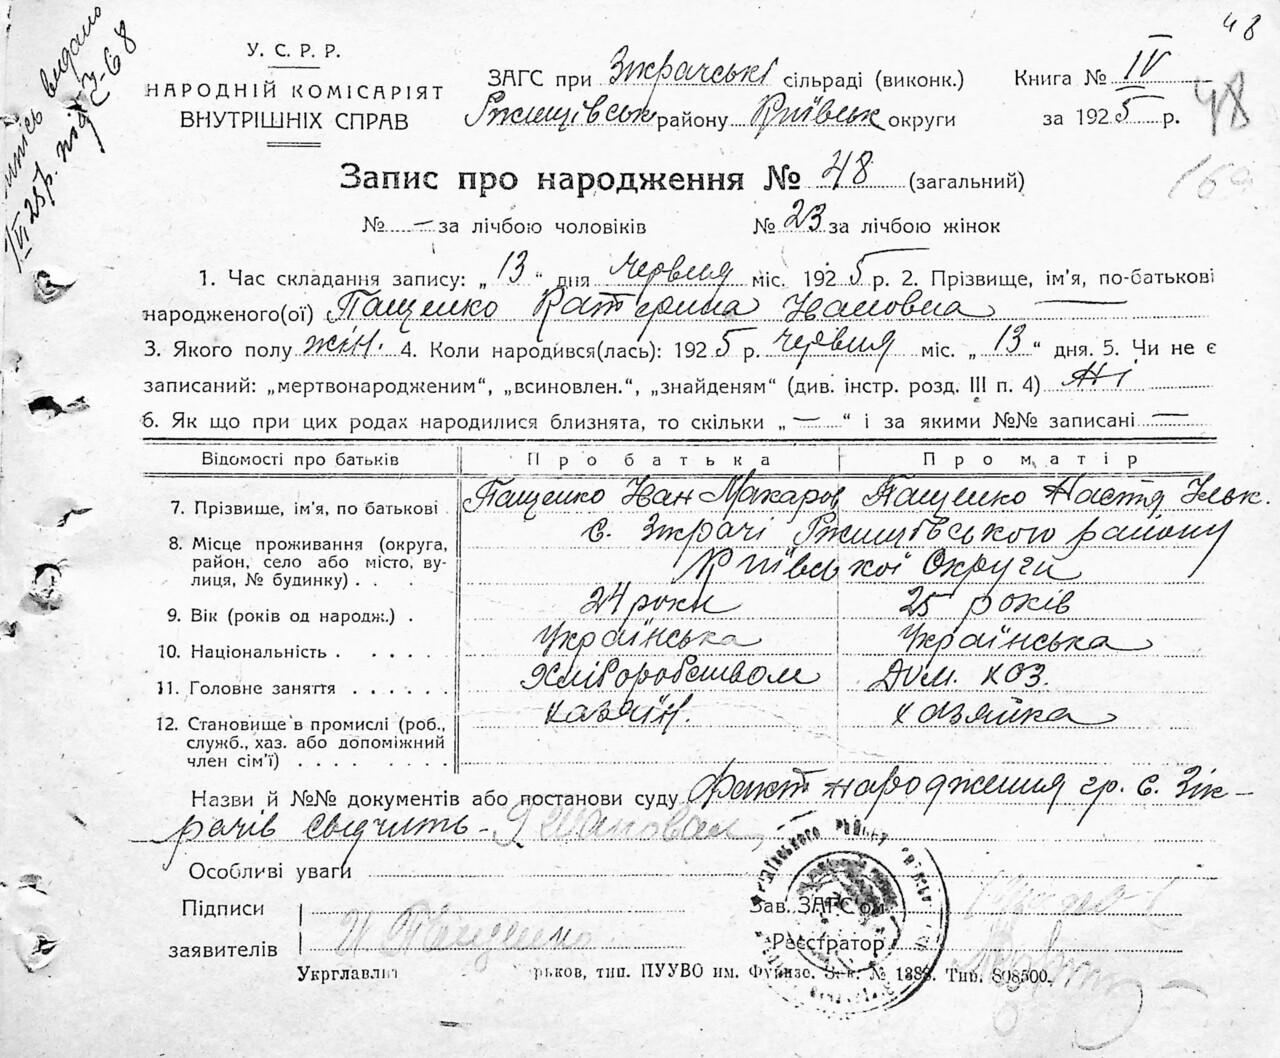 48
У. С. Р. Р.
НАРОДНІЙ КОМІСАРІЯТ
ВНУТРІШНІХ СПРАВ
ЗАГС при Зікрачські сільраді (виконк.)
Ржищівськ району Київськ округи
Книга № IV
за 1925 р.
48
видано
Запис про народження № 48 (загальний)
№ — за лічбою чоловіків № 23 за лічбою жінок
1. Час складання запису: „ 13 “ дня червня міс. 1925 р. 2. Прізвище, ім'я, по-батькові
народженого(ої) Пащенко Катерина Івановна
3. Якого полу жін. 4. Коли народився(лась): 1925 р. червня міс. „ 13 “ дня. 5. Чи не є
записаний: „мертвонародженим“, „всиновлен.“, „знайденям“ (див. інстр. розд. III п. 4) Ні
6. Як що при цих родах народилися близнята, то скільки „ — “ і за якими №№ записані —
Відомості про батьків Про батька Про матір
7. Прізвище, ім'я, по батькові Пащенко Іван Макаров Пащенко Настя Ільк.
8. Місце проживання (округа, район, село або місто, вулиця, № будинку) . . с. Зікрачі Ржищівського району
Київської Округи
9. Вік (років од народж.) . 24 роки 25 років
10. Національність . . . . . Українська Українська
11. Головне заняття . . . . . . Хліборобством Дом. хоз.
12. Становище в промислі (роб., служб., хаз. або допоміжний член сім'ї) . . . . . . хазяїн. хазяйка
Назви й №№ документів або постанови суду Факт народження гр. с. Зік-
рачів свідчить-
Особливі уваги
Підписи
заявителів И Пащенко
Зав. ЗАГС'ом
Реєстратор
Укрглавліт Харьков, тип. ПУУВО им. Фрунзе. Зак. № 1388. Тир. 898500.